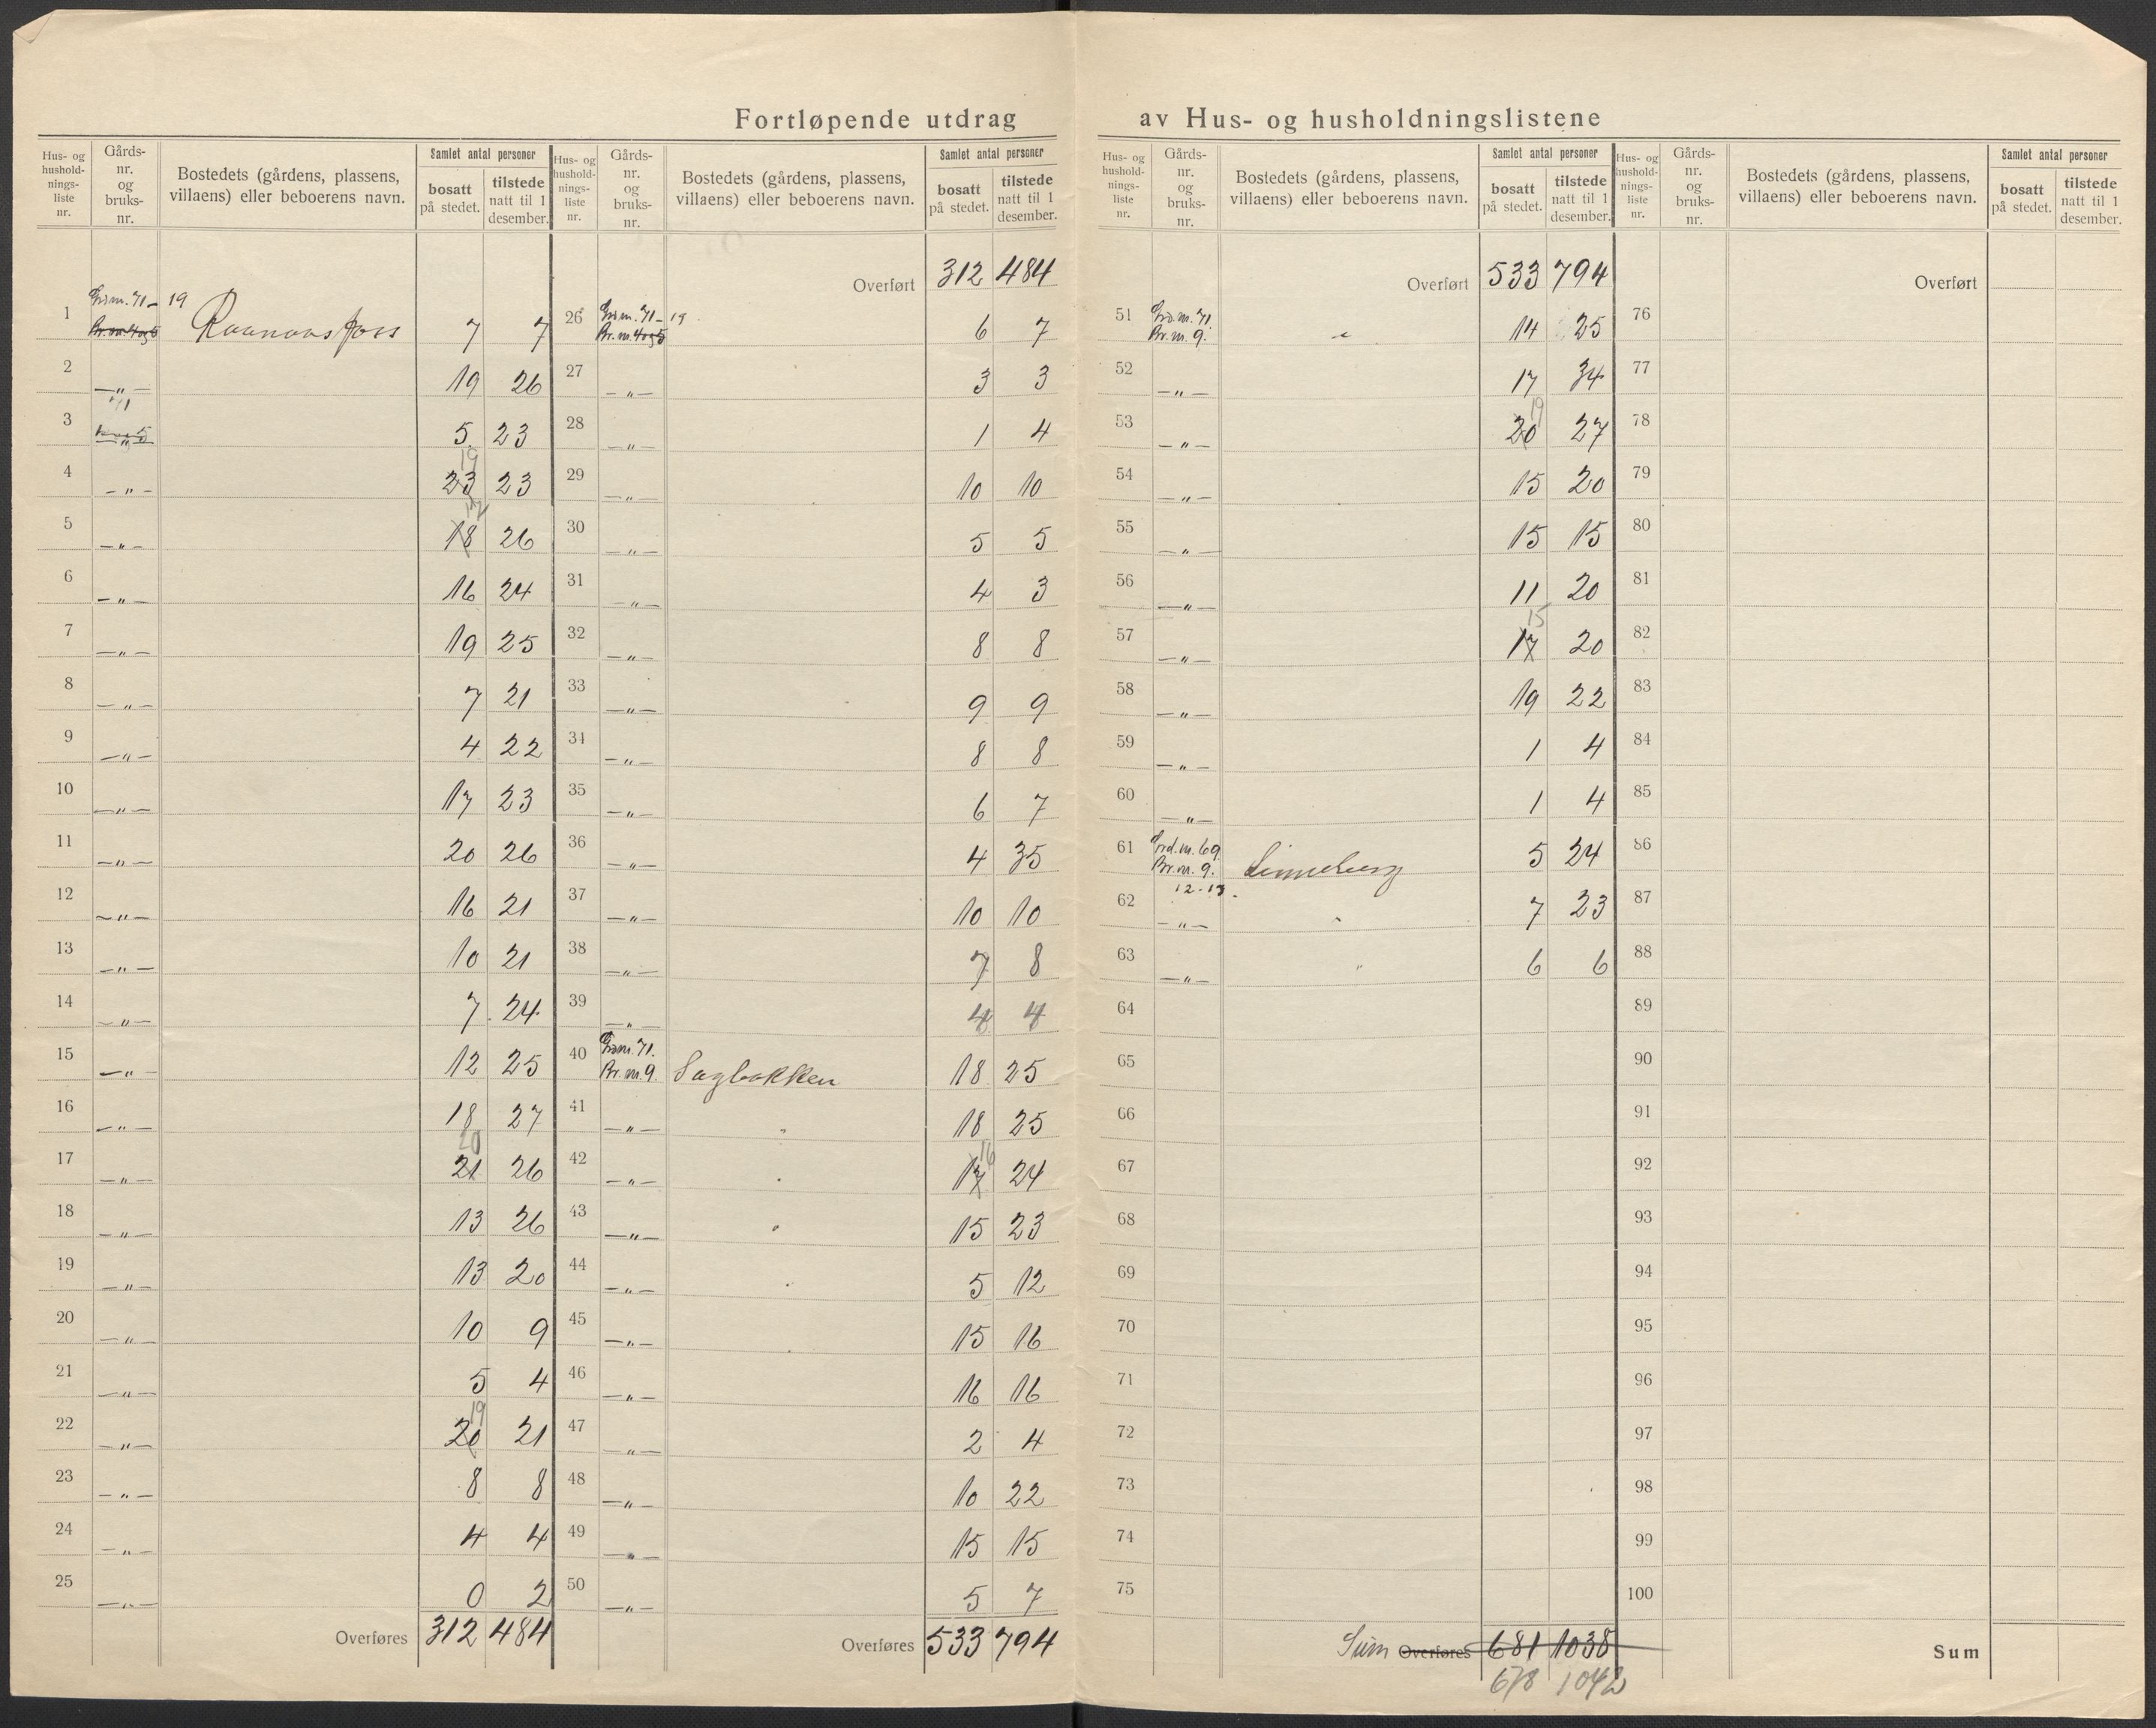 Fortløpende utdrag av Hus- og husholdningslistene
Hus- og hushold-nings-liste nr. | Gårds-nr. og bruks-nr. | Bostedets (gårdens, plassens, villaens) eller beboerens navn. | Samlet antal personer | bosatt på stedet. | tilstede natt til 1 desember.
1 71 - 19 7 7
2 —„— 19 26
3 5 23
4 —„— 23 19 23
5 —„— 18 26
6 —„— 16 24
7 —„— 19 25
8 —„— 7 21
9 —„— 4 22
10 —„— 17 23
11 —„— 20 26
12 —„— 16 21
13 —„— 10 21
14 —„— 7 24
15 —„— 12 25
16 —„— 18 27
17 —„— 21 20 26
18 —„— 13 26
19 —„— 13 20
20 —„— 10 9
21 —„— 5 4
22 —„— 20 19 21
23 —„— 8 8
24 —„— 4 4
25 —„— 0 2
Overføres 312 484
Hus- og hushold-nings-liste nr. | Gårds-nr. og bruks-nr. | Bostedets (gårdens, plassens, villaens) eller beboerens navn. | Samlet antal personer | bosatt på stedet. | tilstede natt til 1 desember.
Overført 312 484
26 71 - 19 Br. nr. 4 og 5 6 7
27 —„— 3 3
28 —„— 1 4
29 —„— 10 10
30 —„— 5 5
31 —„— 4 3
32 —„— 8 8
33 —„— 9 9
34 —„— 8 8
35 —„— 6 7
36 —„— 4 35
37 —„— 10 10
38 —„— 7 8
39 —„— 4 4
40 71. Br. nr. 9. Sagbakken 18 25
41 —„— „ 18 25
42 —„— „ 17 16 24
43 —„— „ 15 23
44 —„— „ 5 12
45 —„— „ 15 16
46 —„— 16 16
47 —„— 2 4
48 —„— 10 22
49 —„— 15 15
50 —„— 5 7
Overføres 533 794
Hus- og hushold-nings-liste nr. | Gårds-nr. og bruks-nr. | Bostedets (gårdens, plassens, villaens) eller beboerens navn. | Samlet antal personer | bosatt på stedet. | tilstede natt til 1 desember.
Overført 533 794
51 71. Br. nr. 9. „ 14 25
52 —„— 17 34
53 —„— 20 19 27
54 —„— 15 20
55 —„— 15 15
56 —„— 11 20
57 —„— 17 15 20
58 —„— 19 22
59 —„— 1 4
60 —„— 1 4
61 Grd. nr. 69. Br. nr. 9. 5 24
12-13.
62 —„— „ 7 23
63 —„— „ 6 6
64
65
66
67
68
69
70
71
72
73
74
75
Sum Overføres 681 1038
678 1042
Hus- og hushold-nings-liste nr. | Gårds-nr. og bruks-nr. | Bostedets (gårdens, plassens, villaens) eller beboerens navn. | Samlet antal personer | bosatt på stedet. | tilstede natt til 1 desember.
Overført
76
77
78
79
80
81
82
83
84
85
86
87
88
89
90
91
92
93
94
95
96
97
98
99
100
Sum